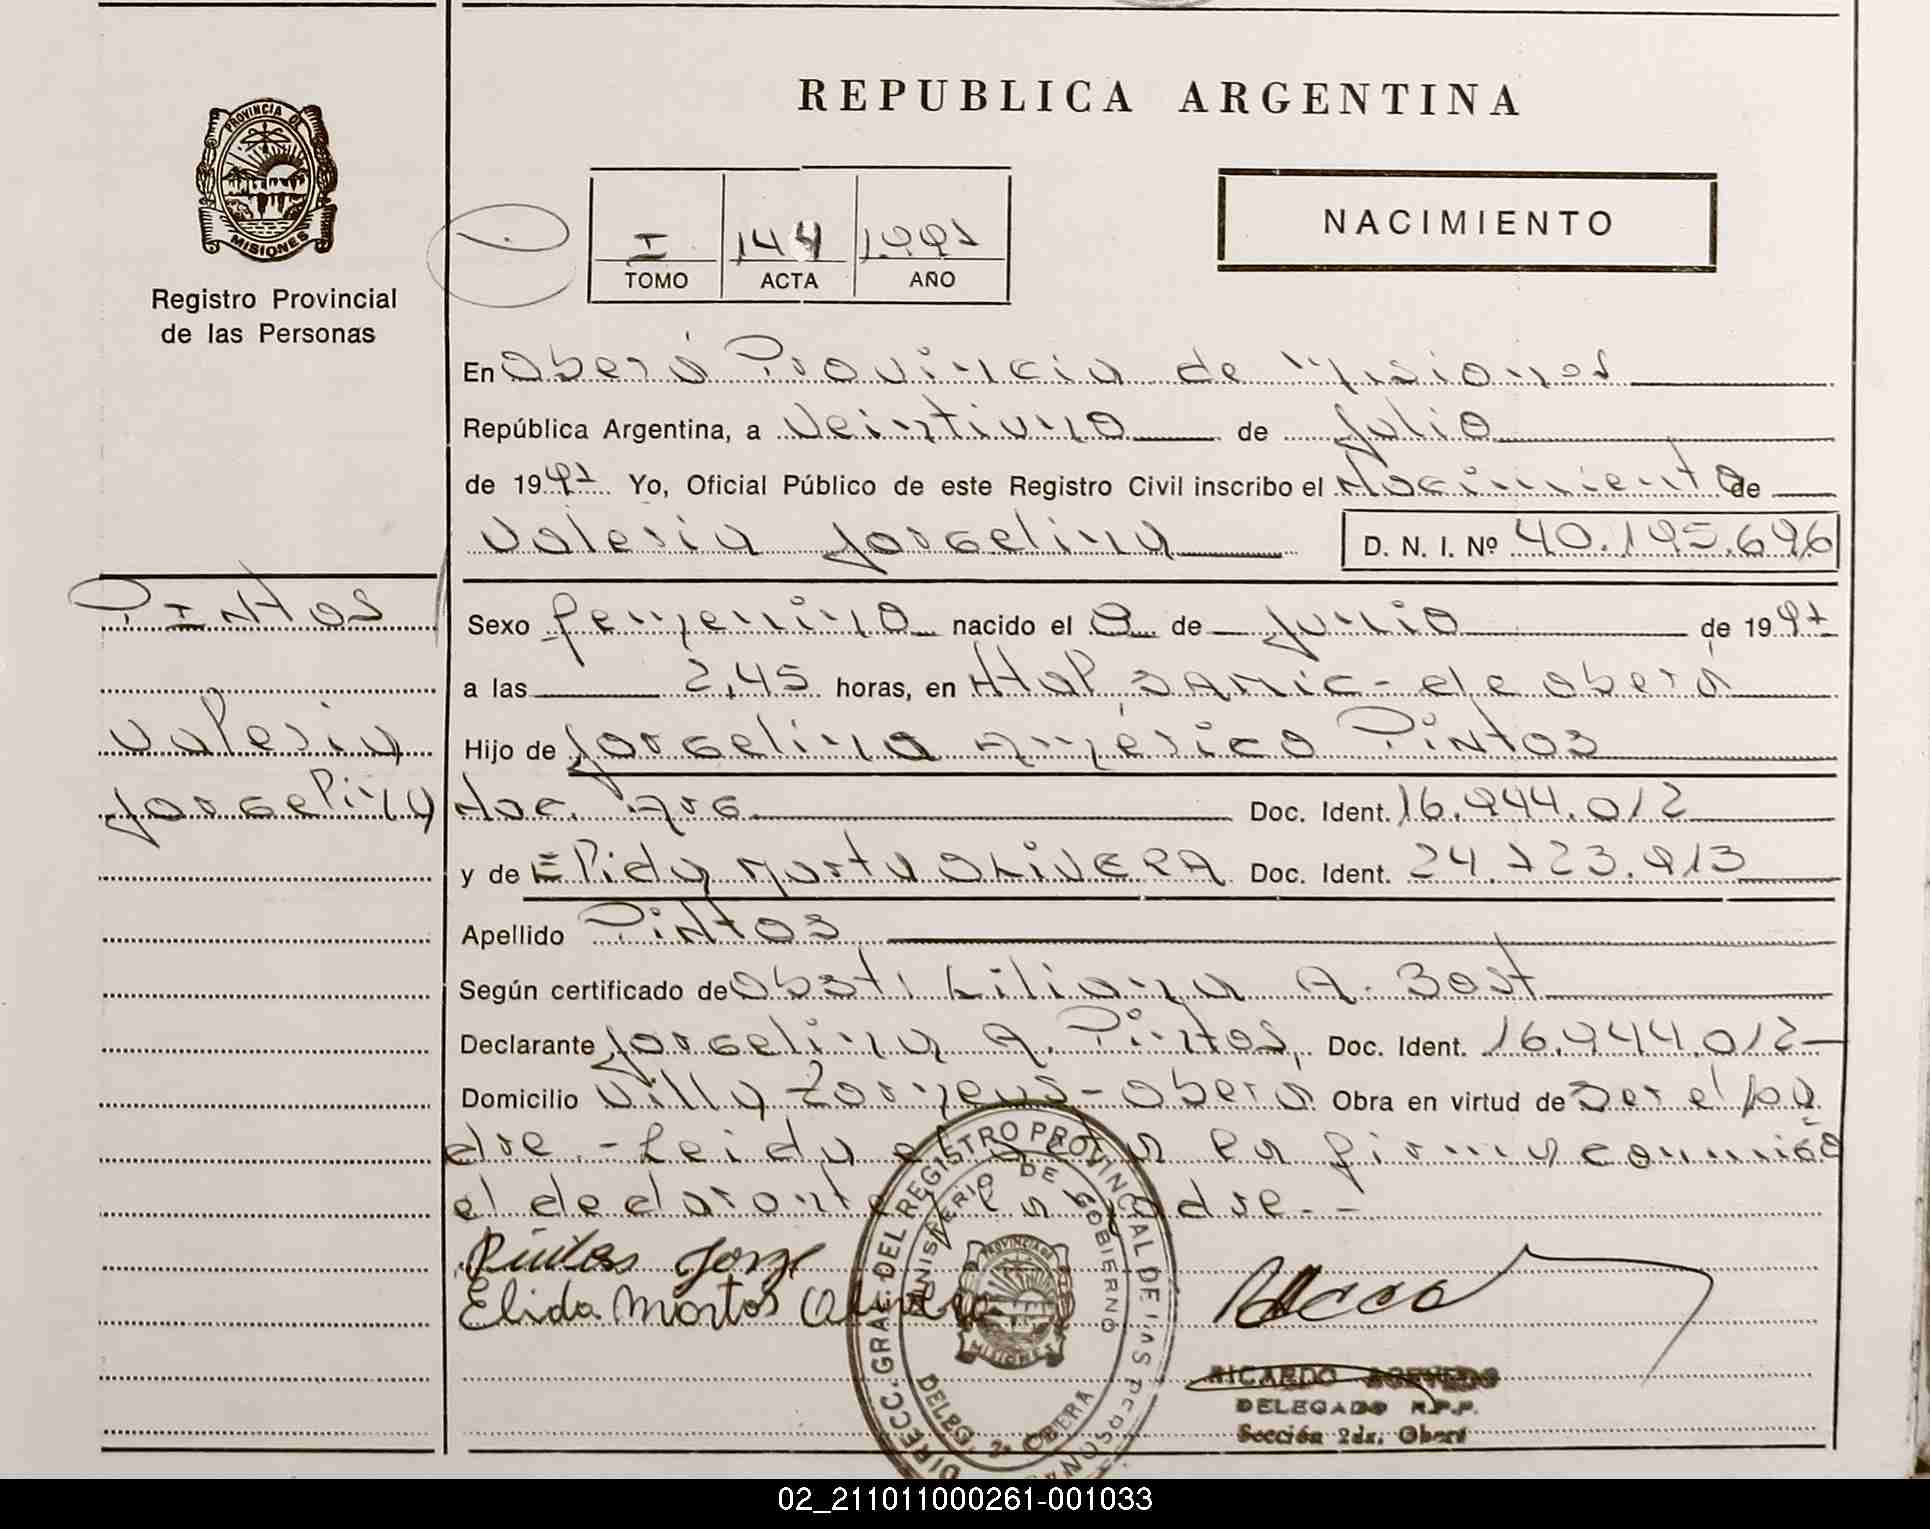 REPUBLICA ARGENTINA
PROVINCIA DE
MISIONES
Registro Provincial
de las Personas
I 144 1.997
TOMO ACTA AÑO
NACIMIENTO
En Oberá Provincia de Misiones
República Argentina, a Veintiuno de Julio
de 1997 Yo, Oficial Público de este Registro Civil inscribo el Nacimiento de
Valeria Jorgelina D. N. I. Nº 40.195.696
Pintos
Valeria
Jorgelina
Sexo femenino nacido el 8 de Junio de 1997
a las 2,45 horas, en Htal SAMIC - de oberá
Hijo de Jorgelino Américo Pintos
Nac. Arg. Doc. Ident. 16.944.012
y de Elida Marta OLIVERA Doc. Ident. 24.723.913
Apellido Pintos
Según certificado de Obst. Liliana A. Bost
Declarante Jorgelino A. Pintos Doc. Ident. 16.944.012
Domicilio Villa - Oberá Obra en virtud de Ser el pa
dre. - Leida el acta la firma conmigo
el declarante y la madre. - -
Pintos Jorge
Elida Martos Olivera
DIRECC. GRAL. DEL REGISTRO PROVINCIAL DE LAS PERSONAS
MINISTERIO DE GOBIERNO
PROVINCIA DE
MISIONES
DELEG. 2ª OBERA
RICARDO ACEVEDO
DELEGADO R.P.P.
Sección 2da. Oberá
02_211011000261-001033